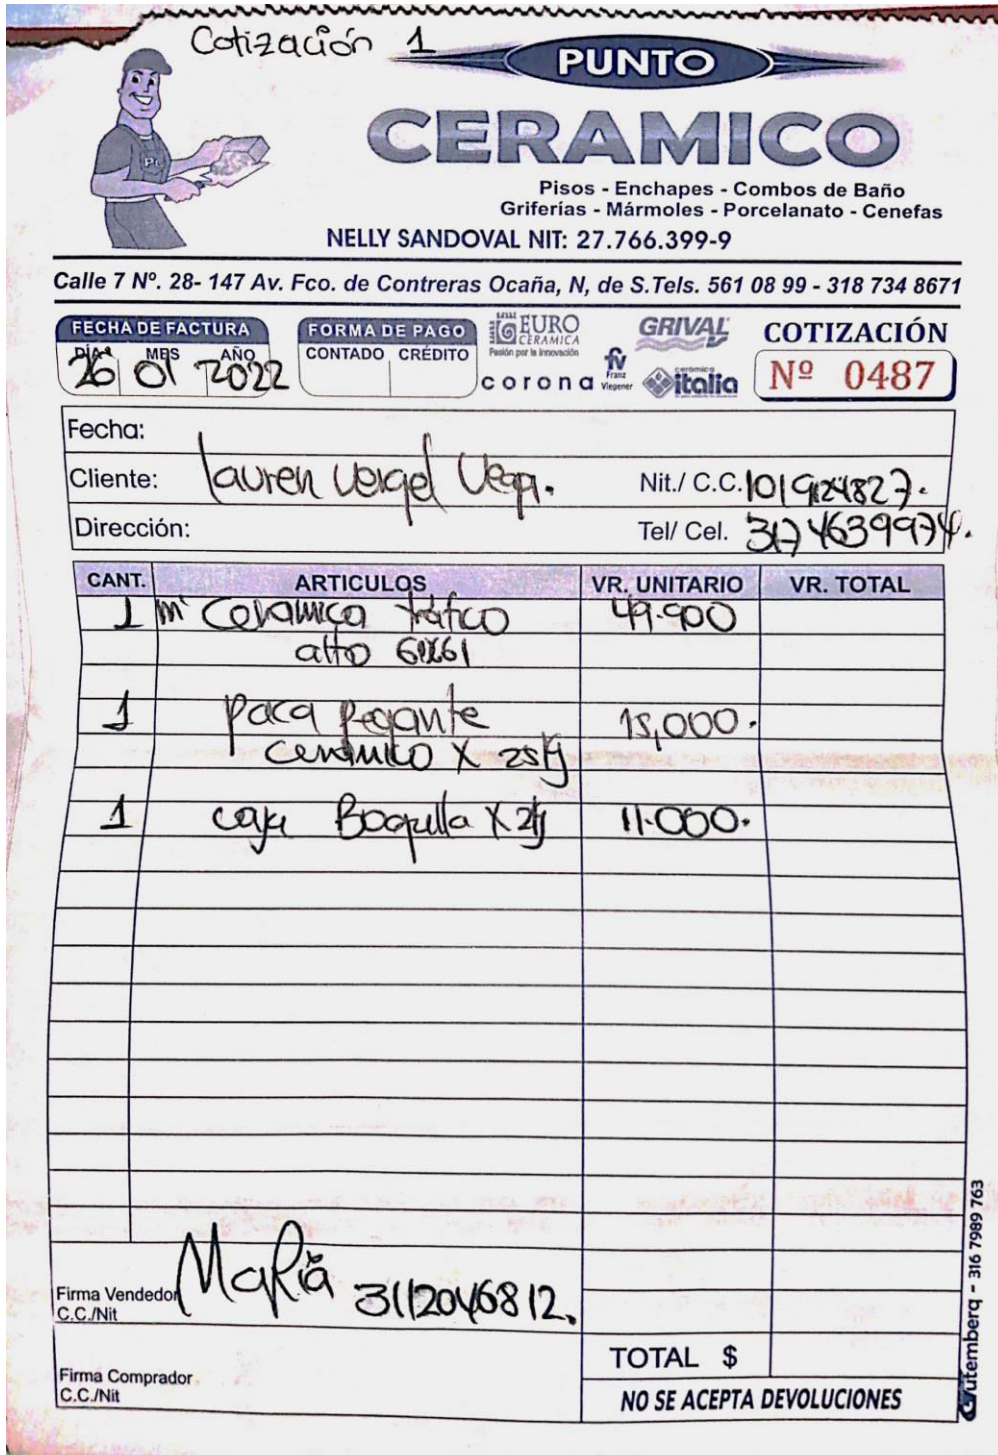 Cotización 1
PUNTO
CERAMICO
Pisos - Enchapes - Combos de Baño
Griferías - Mármoles - Porcelanato - Cenefas
NELLY SANDOVAL NIT: 27.766.399-9
Calle 7 Nº. 28- 147 Av. Fco. de Contreras Ocaña, N, de S.Tels. 561 08 99 - 318 734 8671
FECHA DE FACTURA
DÍA MES AÑO
26 01 2022
FORMA DE PAGO
CONTADO CRÉDITO
EURO
CERAMICA
Pasión por la innovación
GRIVAL
corona
fv
Franz
Viegener
ceramica
italia
COTIZACIÓN
Nº 0487
Fecha:
Cliente: Lauren Vergel Vega. Nit./ C.C.
Dirección: Tel/ Cel. 3174639974.
CANT. ARTICULOS VR. UNITARIO VR. TOTAL
1 m² Ceramica tráfico 49.900
alto 61x61
1 paca pegante 15,000.
ceramico x 25kg
1 caja Boquilla x 2kg 11.000.
Maria 3112046812.
Firma Vendedor
C.C./Nit
TOTAL $
Firma Comprador
C.C./Nit
NO SE ACEPTA DEVOLUCIONES
Gutemberg - 316 7989 763